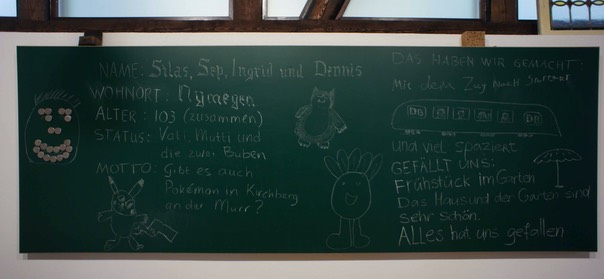 NAME: Silas, Sep, Ingrid und Dennis
WOHNORT: Nijmegen
ALTER: 103 (zusammen)
STATUS: Vati, Mutti und
die zwei Buben
MOTTO: Gibt es auch
Pokémon in Kirchberg
an der Murr?
DAS HABEN WIR GEMACHT:
Mit dem Zug nach Stuttgart
und viel spaziert
GEFÄLLT UNS:
Frühstück im Garten
Das Haus und der Garten sind
sehr schön.
ALLes hat uns gefallen